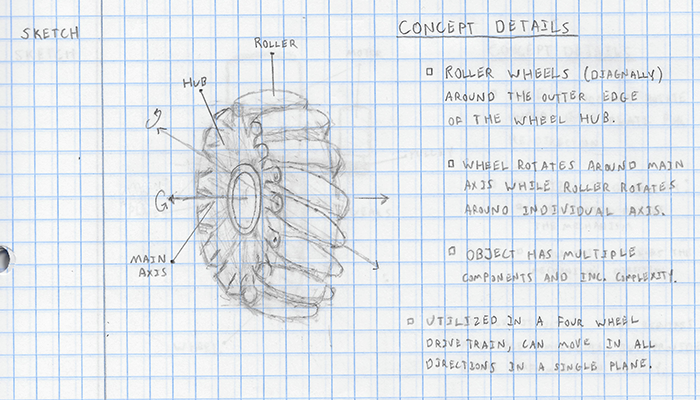 SKETCH
ROLLER
HUB
MAIN
AXIS
CONCEPT DETAILS
ROLLER WHEELS (DIAGNALLY)
AROUND THE OUTTER EDGE
OF THE WHEEL HUB.
WHEEL ROTATES AROUND MAIN
AXIS WHILE ROLLER ROTATES
AROUND INDIVIDUAL AXIS.
OBJECT HAS MULTIPLE
COMPONENTS AND INC. COMPLEXITY.
UTILIZED IN A FOUR WHEEL
DRIVETRAIN, CAN MOVE IN ALL
DIRECTIONS IN A SINGLE PLANE.